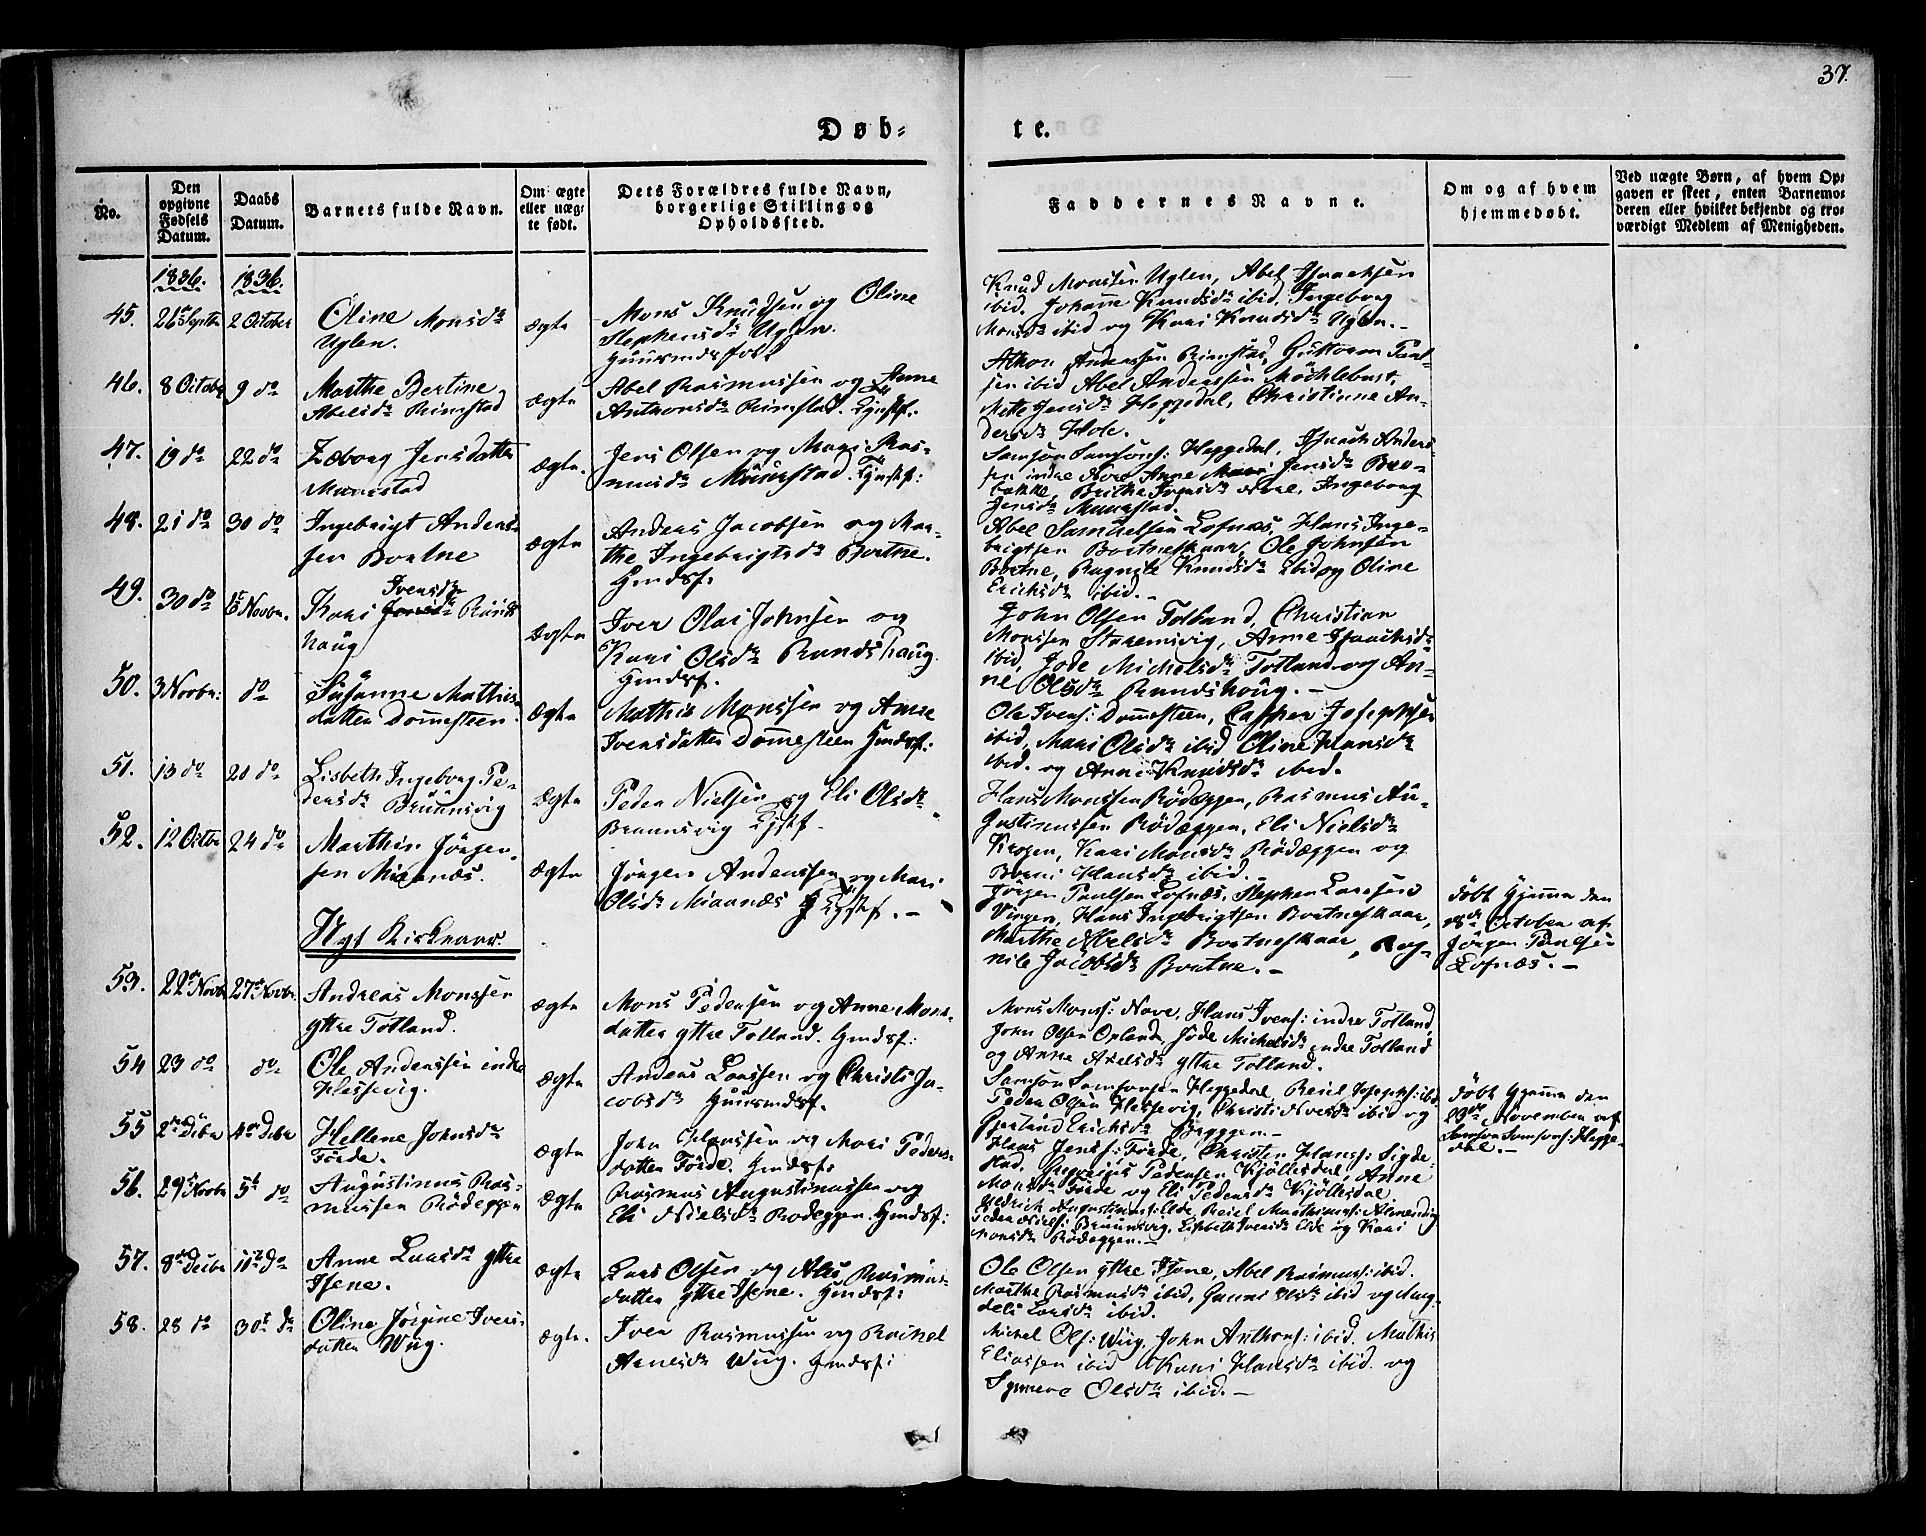 37.
Døb-
te.
No.
Den opgivne Fødsels Datum.
Daabs Datum.
Barnets fulde Navn.
Om ægte eller uægte født.
Dets Forældres fulde Navn, borgerlige Stilling og Opholdssted.
Faddernes Navne.
Om og af hvem hjemmedøbt.
Ved uægte Børn, af hvem Opgaven er skeet, enten Barnemoderen eller hvilket bekjendt og troværdigt Medlem af Menigheden.
1836. 1836.
45. 26 Septbr 2 October
Oline Monsdr
Uglen.
ægte
Mons Knudsen og Oline
Stephensdr Uglen.
Knud Monsen Uglen, Abel Isaachsen
ibid. Johane Knudsdr ibid. Ingeborg
Monsdr ibid og Kari Knudsdr Uglen.-
46. 8 Octobr 9 do
Marthe Bertine
Abelsdr Rimstad
ægte
Abel Rasmussen og Anne
Anthonsdr Rimstad.
Anderssen Rimstad, Guttorm Paul-
sen ibid Abel Anderssen Möcklebust,
Mette Jensdr Heggedal, Christiane An-
dersdr Hole.
47. 19 do 22 do
Jensdatter
ægte.
Jens Olsen og Mari Ras-
musdr
Samson Samsons: Heggedal, Isaach Anders-
sen indre Anne Jensdr
Brithe Ingeborg
Jensdr
48. 21 do 30 do
Ingebrigt Anders-
sen Bortne
ægte
Anders Jacobsen og Mar-
the Ingebrigtsdr Bortne.
Gmdsf:
Abel Samuelsen Lofnæs, Hans Inge-
brigtsen Bortneskaar, Ole Johnsen
Bortne, Ragnile Knudsdr ibid og Oline
Erichsdr ibid.-
49. 30 do Novbr.
Iversdr
Kari Runds
haug
ægte
Iver Olai Johnsen og
Kari Olsdr Rundshaug
Gmdsf.
John Olsen Totland, Christian
Monssen Anne Isaachsdr
ibid, Jode Michelsdr Totland og An-
ne Olsdr Rundshoug.-
50. 3 Novbr: do
Susanne Mathis
datter Domesteen
ægte
Mathis Monssen og Anne
Iversdatter Domesteen Gmdsf:
Ole Ivers: Domesteen, Casper Josephsen
ibid, Mari Olsdr ibid Oline Hansdr
ibid. og Anne Knudsdr ibid.
51. 13 do 20 do
Lisbeth Ingeborg Pe-
dersdr Bruunsvig
ægte
Peder Nielsen og Eli Olsdr
Bruunsvig
Hans Monssen Rödeggen, Rasmus Au-
gustinussen Rödeggen, Eli Nielsdr
Krogen, Kari Monsdr Rödeggen og
Hansdr ibid.
52. 12 Octbr 24 do
Marthin Jörgen-
sen Miaanæs.
ægte
Jörgen Anderssen og Mari
Olsdr Miaanæs
Jörgen Paulsen Lofnæs, Stephen Larssen
Vingen, Hans Ingebrigtsen Bortneskaar,
Marthe Abelsdr Bortneskaar, Rag-
nile Jacobsdr Bortne.-
döbt hjemme den
October af
Jörgen Paulsen
Lofnæs.-
Nyt Kirkeaar.
53. 22 Novb 27 Novbr.
Andreas Monssen
ytre Totland.
ægte
Mons Pedersen og Anne Mons-
datter ytre Totland. Gmdsf:
Mons Mons: Nave, Hans Ivers: indre Totland,
John Olsen Opland, Jode Michelsdr indre Totland
og Anne Axelsdr ytre Totland.
54 23 do do
Ole Anderssen indre
Hessevig.
ægte
Anders Larssen og Christi Ja-
cobsdr
Samson Samsonsen Heggedal, Reiel Josephs: ibid
Peder Olsen Hessevig, Christi ibid og
Gjertrud Erichsdr
döbt hjemme den
23de November af
Samson Samsons: Hegge-
dal.-
55 2 Debr 4 Debr
Hellene Johnsdr
Förde.
ægte
John Hanssen og Mari Peders-
datter Förde. Gmdsf:
Hans Jens: Förde, Christen Hanss: Sigde-
stad, Pedersen Kjöllesdal, Anne
Monsdr Förde og Eli Pedersdr Kjöllesdal.
56. 29 Novbr 5t do
Augustinus Ras-
mussen Rödeggen
ægte
Rasmus Augustinussen og
Eli Nielsdr Rödeggen. Gmdsf:
Augustinus: Elde, Reiel Almending
Peder Niels: Bruunsvig, Lisbeth Iversdr Elde og Kari
Monsdr Rödeggen.-
57. 8 Decbr 11 do
Anne Larsdr ytre
Isene.
ægte
Lars Olsen og Rasmus-
datter ytre Isene. Gmdsf:
Ole Olsen ytre Isene, Abel Rasmus: ibid.
Marthe Rasmusdr ibid, Olsdr ibid og Mag-
deli Larsdr ibid.
58. 28 do 30t do
Oline Jörgine Ivers-
datter Wiig.
ægte.
Iver Rasmussen og Rachel
Wiig. Gmdsf:
Michel Ols: Wiig, John Anthons: ibid. Mathis
Eliassen ibid Kari Hansdr ibid. og
Synneve Olsdr ibid.-